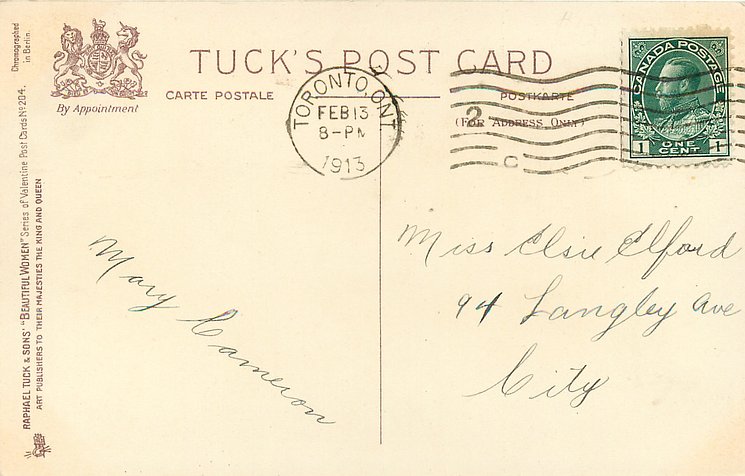 TUCK'S POST CARD
By Appointment
CARTE POSTALE
POSTKARTE
(FOR ADDRESS ONLY)
Chromographed
in Berlin.
RAPHAEL TUCK & SONS' "BEAUTIFUL WOMEN" Series of Valentine Post Cards No 204.
ART PUBLISHERS TO THEIR MAJESTIES THE KING AND QUEEN
TORONTO, ONT
FEB 13
8-PM
1913
2
C
CANADA POSTAGE
1 ONE CENT 1
Mary Cameron
Miss Elsie Elford
94 Langley Ave
City